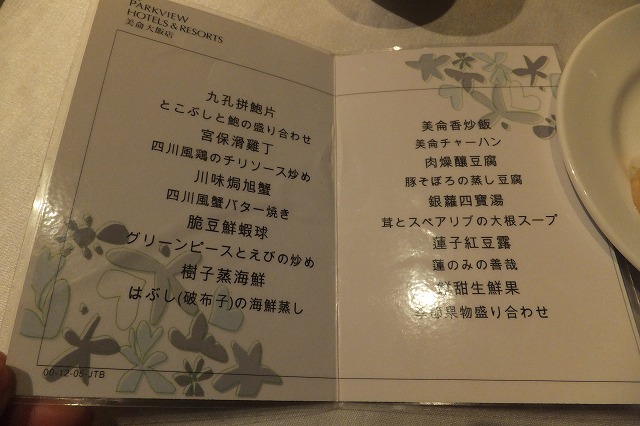 PARKVIEW
HOTELS & RESORTS
美侖大飯店
九孔拼鮑片
とこぶしと鮑の盛り合わせ
宮保滑雞丁
四川風鶏のチリソース炒め
川味焗旭蟹
四川風蟹バター焼き
脆豆鮮蝦球
グリーンピースとえびの炒め
樹子蒸海鮮
はぶし(破布子)の海鮮蒸し
00-12-05-JTB
美侖香炒飯
美侖チャーハン
肉燥釀豆腐
豚そぼろの蒸し豆腐
銀蘿四寶湯
茸とスペアリブの大根スープ
蓮子紅豆露
蓮のみの善哉
鮮甜生鮮果
季節果物盛り合わせ